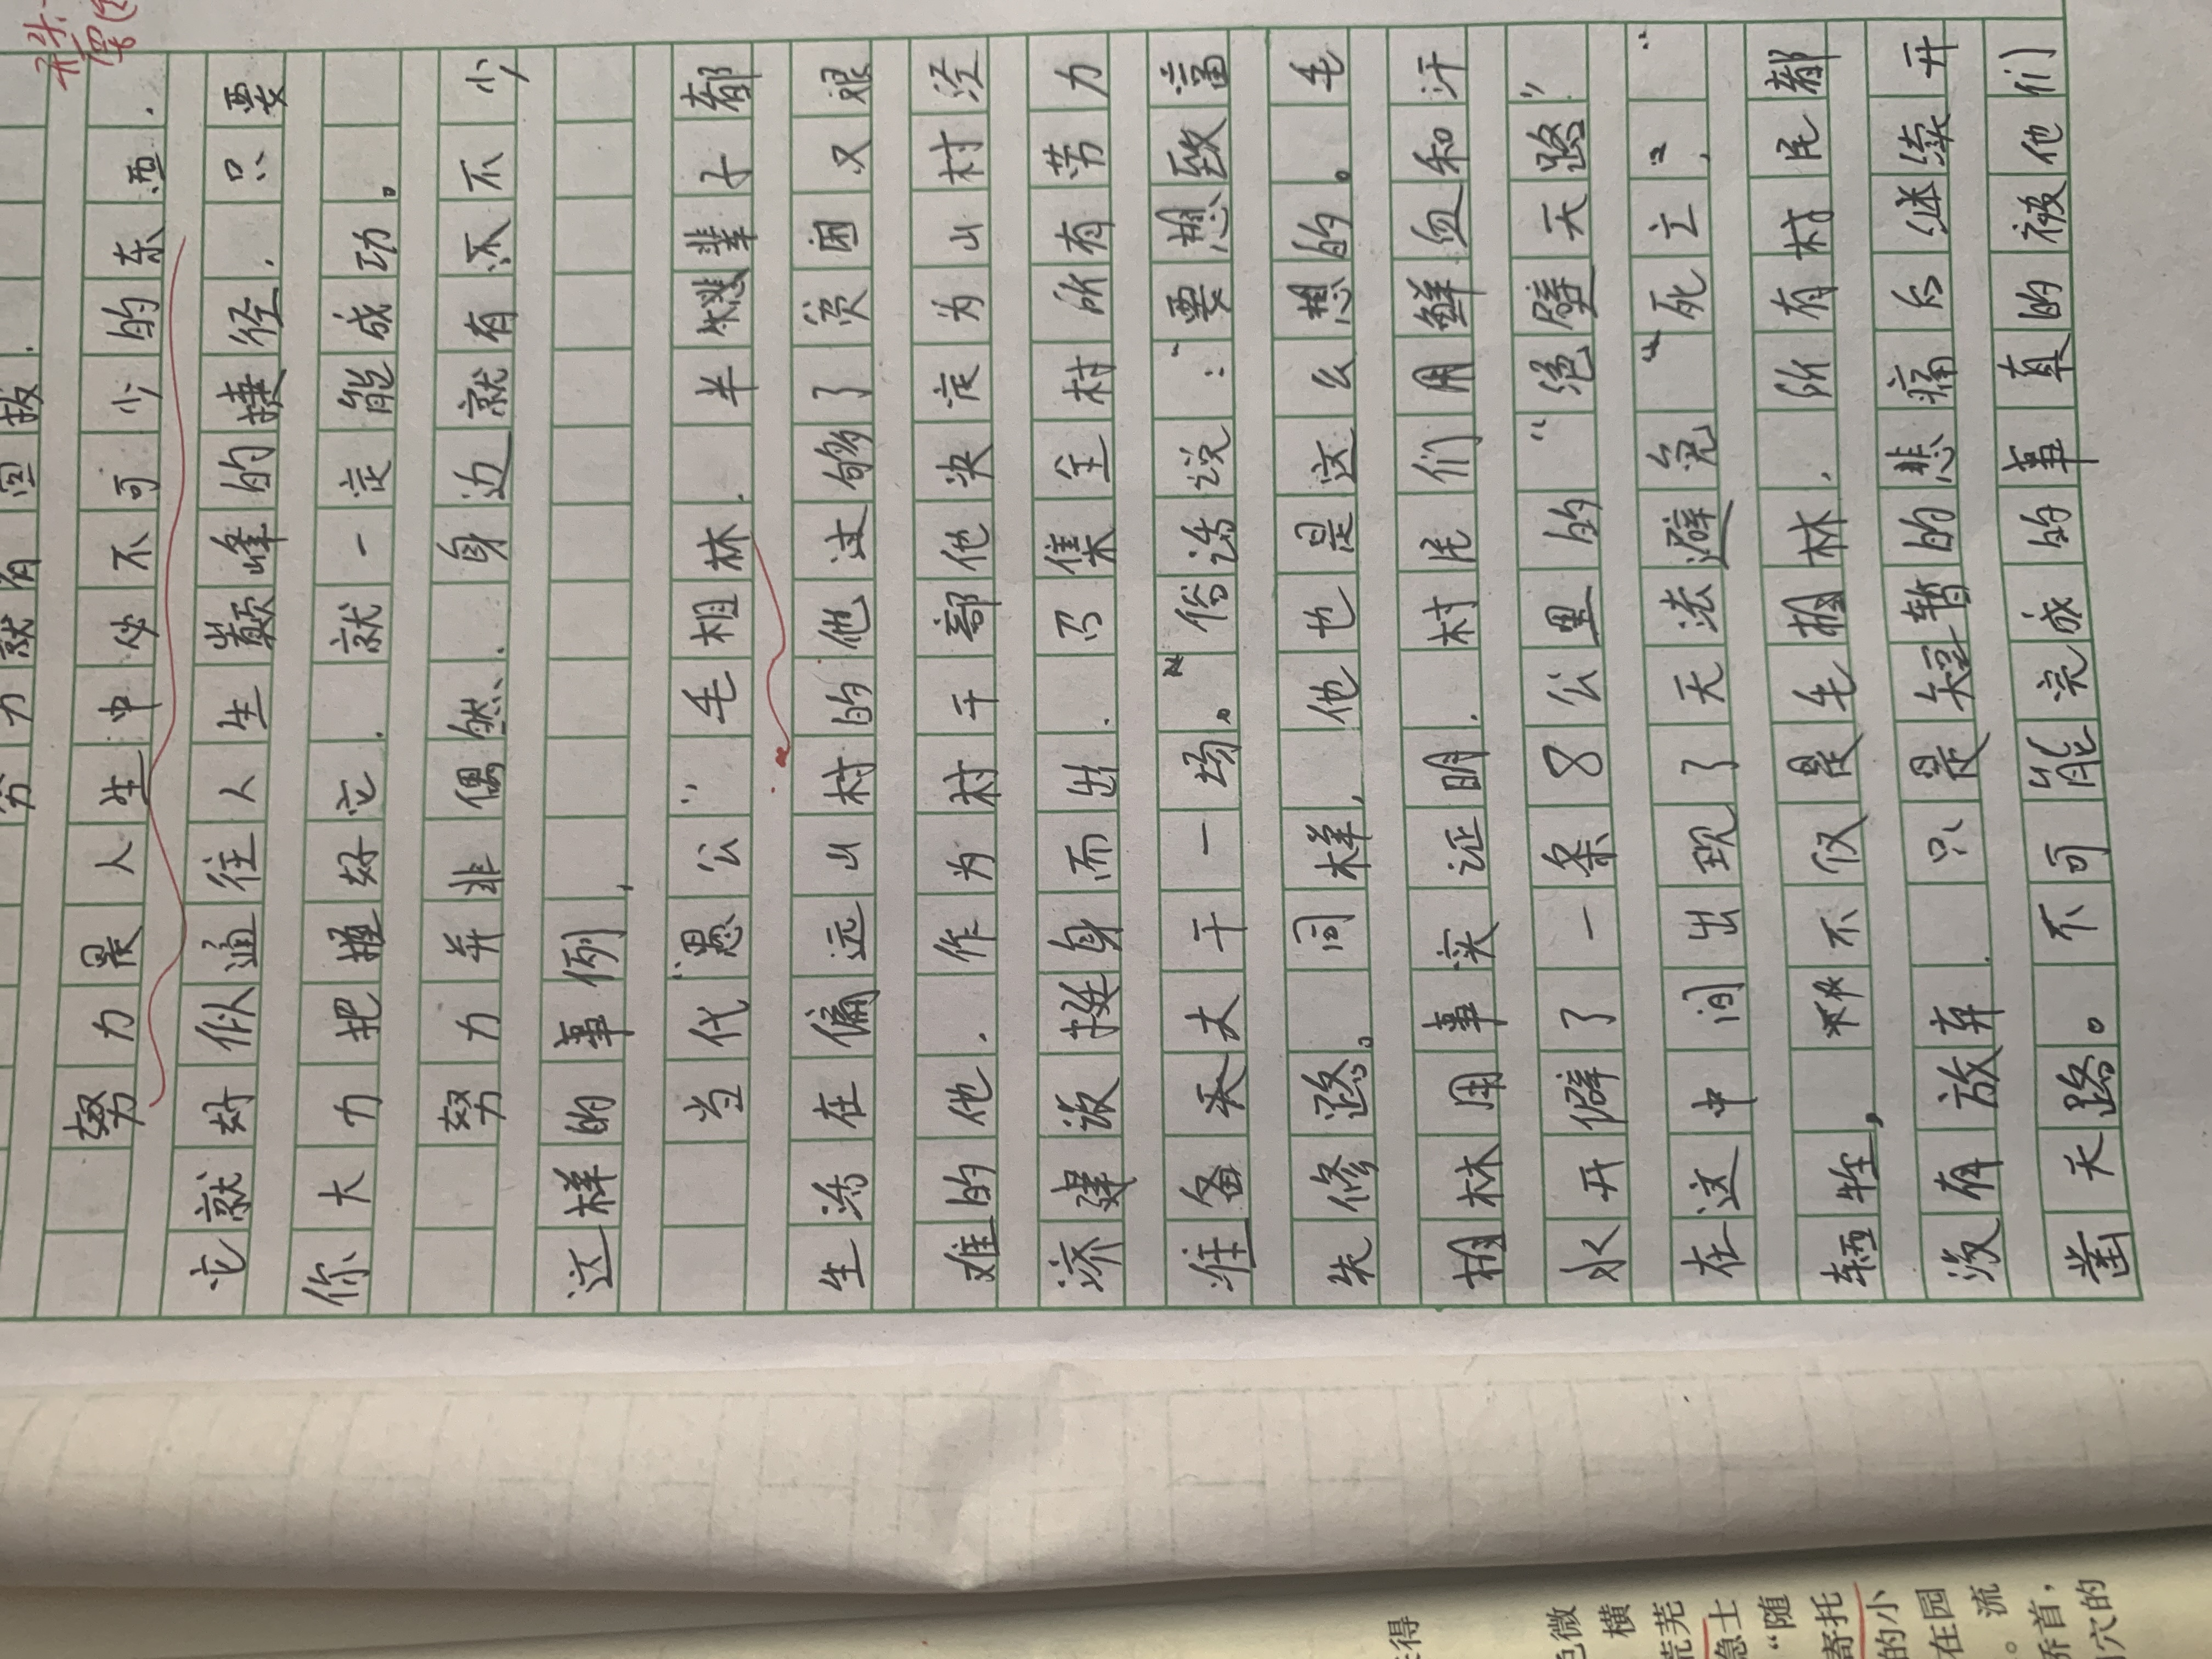 努力就有回报.
努力是人生中必不可少的东西.
它就好似通往人生巅峰的捷径.只要
你大力把握好它.就一定能成功。
努力并非偶然、身边就有还不不少
这样的事例,
当代“愚公”毛相林.半辈子都
生活在偏远山村的他过够了贫困又艰
难的他.作为村干部他决定为山村经
济建设挺身而出.召集全村所有劳力
准备大干一场。”俗话说:“要想致富
先修路。同样,他也是这么想的。毛
相林用事实证明.村民们用鲜血和汗
水开僻了一条8公里的“绝壁天路”.
在这中间出现了无法避免“死亡”,“
牺牲,不仅是毛相林.所有村民都
没有放弃.只是短暂的悲痛后继续开
凿天路。不可能完成的事真的被他们
得
色微
横
荒芜
急士
“随
寄托
的小
在园
。流
乔首,
穴的